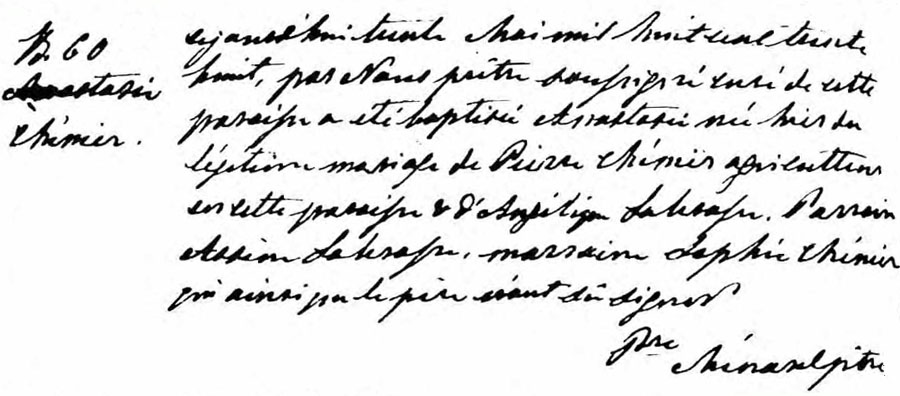 B. 60
Anastasie
Chénier.
cejourd'hui trente Mai mil huit cent trente
huit, par Nous prêtre soussigné curé de cette
paroisse a été baptisée Anastasie née hier du
légitime mariage de Pierre Chénier agriculteur
en cette paroisse & d'Angélique Labrosse. Parrain
Labrosse. marraine Sophie Chénier
qui ainsi que le père n'ont su signer
Ptre